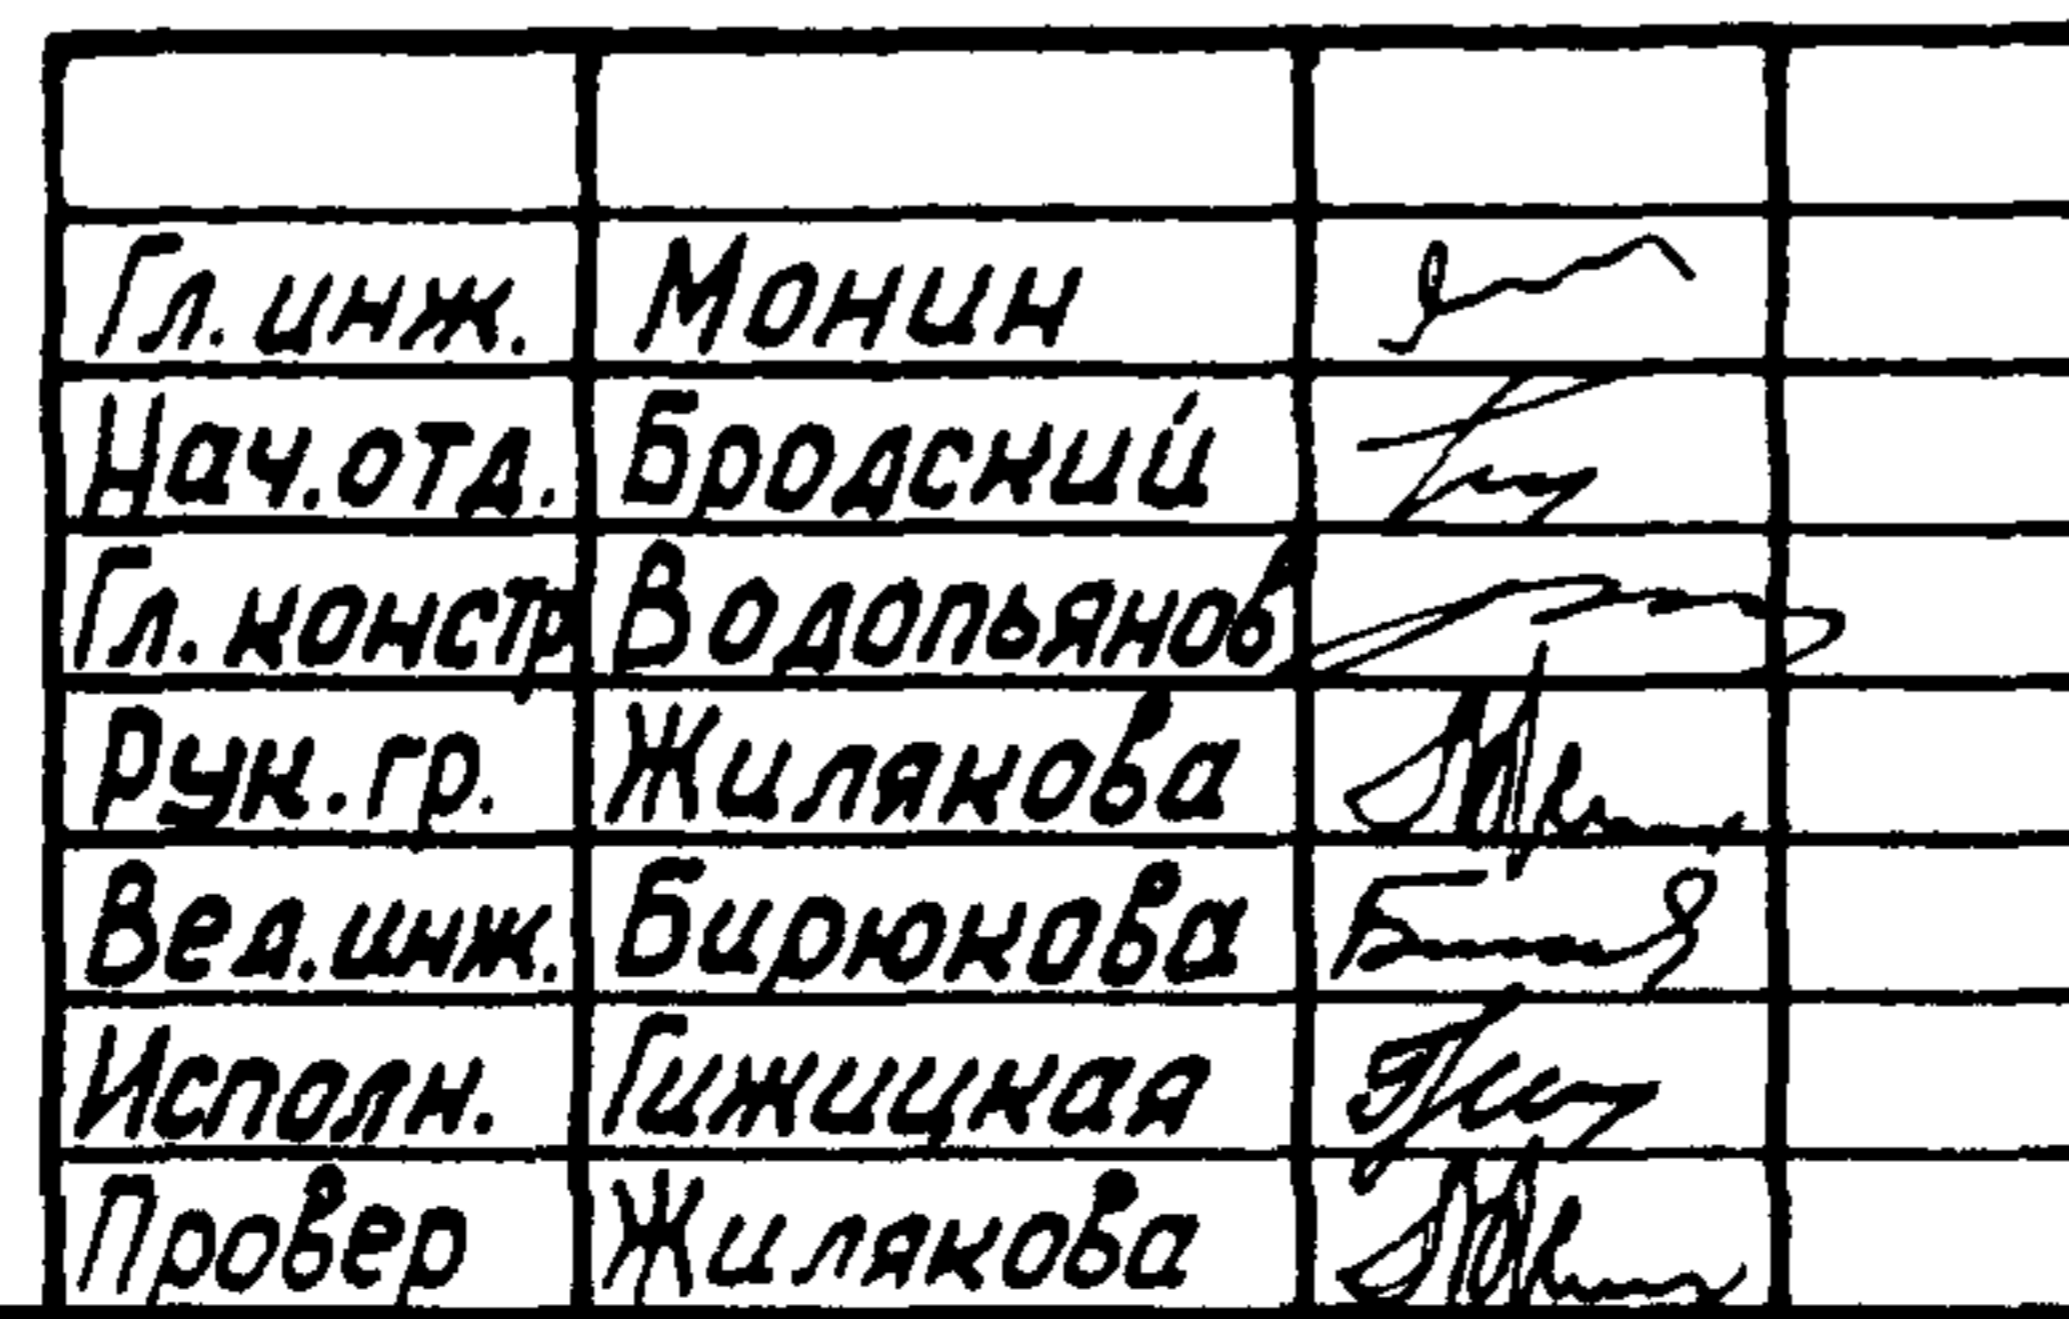 Гл. инж. Монин
Нач. отд. Бродский
Гл. констр Водопьянов
Рук. гр. Жилякова
Вед. инж. Бирюкова
Исполн. Гижицкая
Провер Жилякова